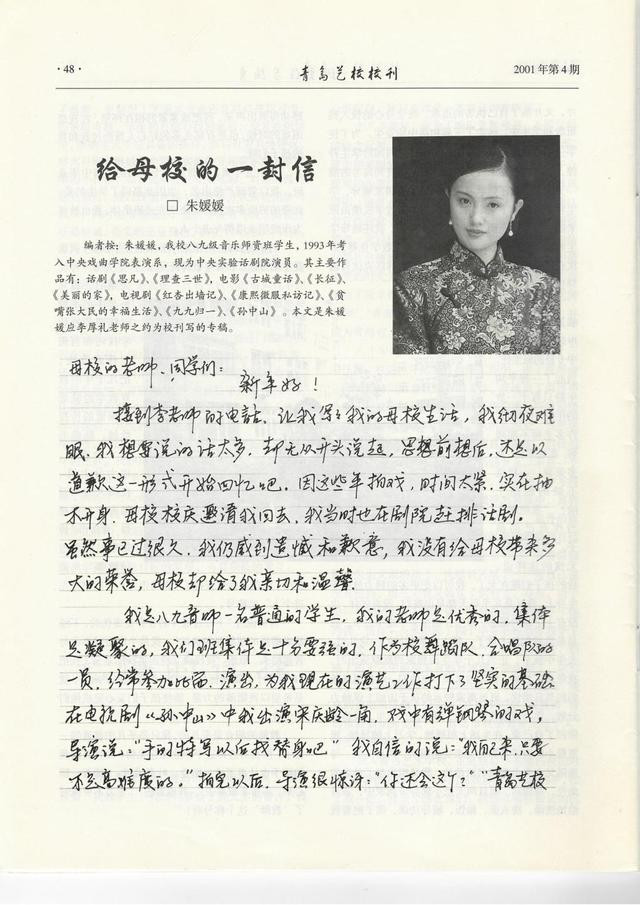 ·48·
青岛艺校校刊
2001年第4期
给母校的一封信
□ 朱媛媛
编者按：朱媛媛，我校八九级音乐师资班学生，1993年考
入中央戏曲学院表演系，现为中央实验话剧院演员。其主要作
品有：话剧《思凡》、《理查三世》，电影《古城童话》、《长征》、
《美丽的家》，电视剧《红杏出墙记》、《康熙微服私访记》、《贫
嘴张大民的幸福生活》、《九九归一》、《孙中山》。本文是朱媛
媛应李厚礼老师之约为校刊写的专稿。
母校的老师、同学们：
新年好！
接到李老师的电话，让我写写我的母校生活，我彻夜难
眠，我想要说的话太多，却无从开头说起，思想前想后，还是以
道歉这一形式开始回忆吧。因这些年拍戏，时间太紧，实在抽
不开身，母校校庆邀请我回去，我当时也在剧院赶排话剧。
虽然事已过很久，我仍感到遗憾和歉意，我没有给母校带来多
大的荣誉，母校却给了我亲切和温馨。
我是八九音师一名普通的学生，我的老师是优秀的，集体
是凝聚的，我们班集体是十分要强的，作为校舞蹈队、合唱队的
一员，经常参加比赛、演出，为我现在的演艺工作打下了坚实的基础。
在电视剧《孙中山》中我出演宋庆龄一角，戏中有弹钢琴的戏，
导演说："手的特写以后找替身吧" 我自信的说："我自己来，只要
不是高难度的。"拍完以后，导演很惊讶："你还会这个？" "青岛艺校